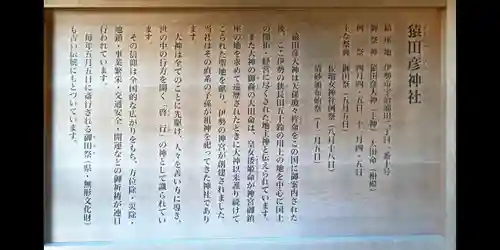 猿田彦神社
鎮座地 伊勢市宇治浦田二丁目一番十号
御祭神 猿田彦大神(主神) 大田命(相殿)
例祭 四月四、五日 十月四、五日
主な祭典 御田祭(五月五日)
佐瑠女神社例祭(八月十八日)
清砂頒布始祭(十二月九日)
猿田彦大神は天孫瓊々杵命をこの国に御案内された
後、ここ伊勢の狭長田五十鈴の川上の地を中心に国土
の開拓・経営に尽くされた地主神と伝えられています。
また大神の御裔の大田命は、皇女倭姫命が神宮御鎮
座の地を求めて遠歴されたときに大神以来護り続けて
こられた聖地を献り、伊勢の神宮が創建されました。
当社はその直系の子孫が祖神を祀ってきた神社であり
ます。
大神は全てのことに先駆け、人々を善い方に導き、
世の中の行方を開く「啓行」の神として識られてい
ます。
その信仰は全国的な広がりをもち、方位除・災除・
地鎮・事業繁栄・交通安全・開運などの御祈祷が連日
行われています。
毎年五月五日に斎行される御田祭(県・無形文化財)
も古い伝統にもとづいています。